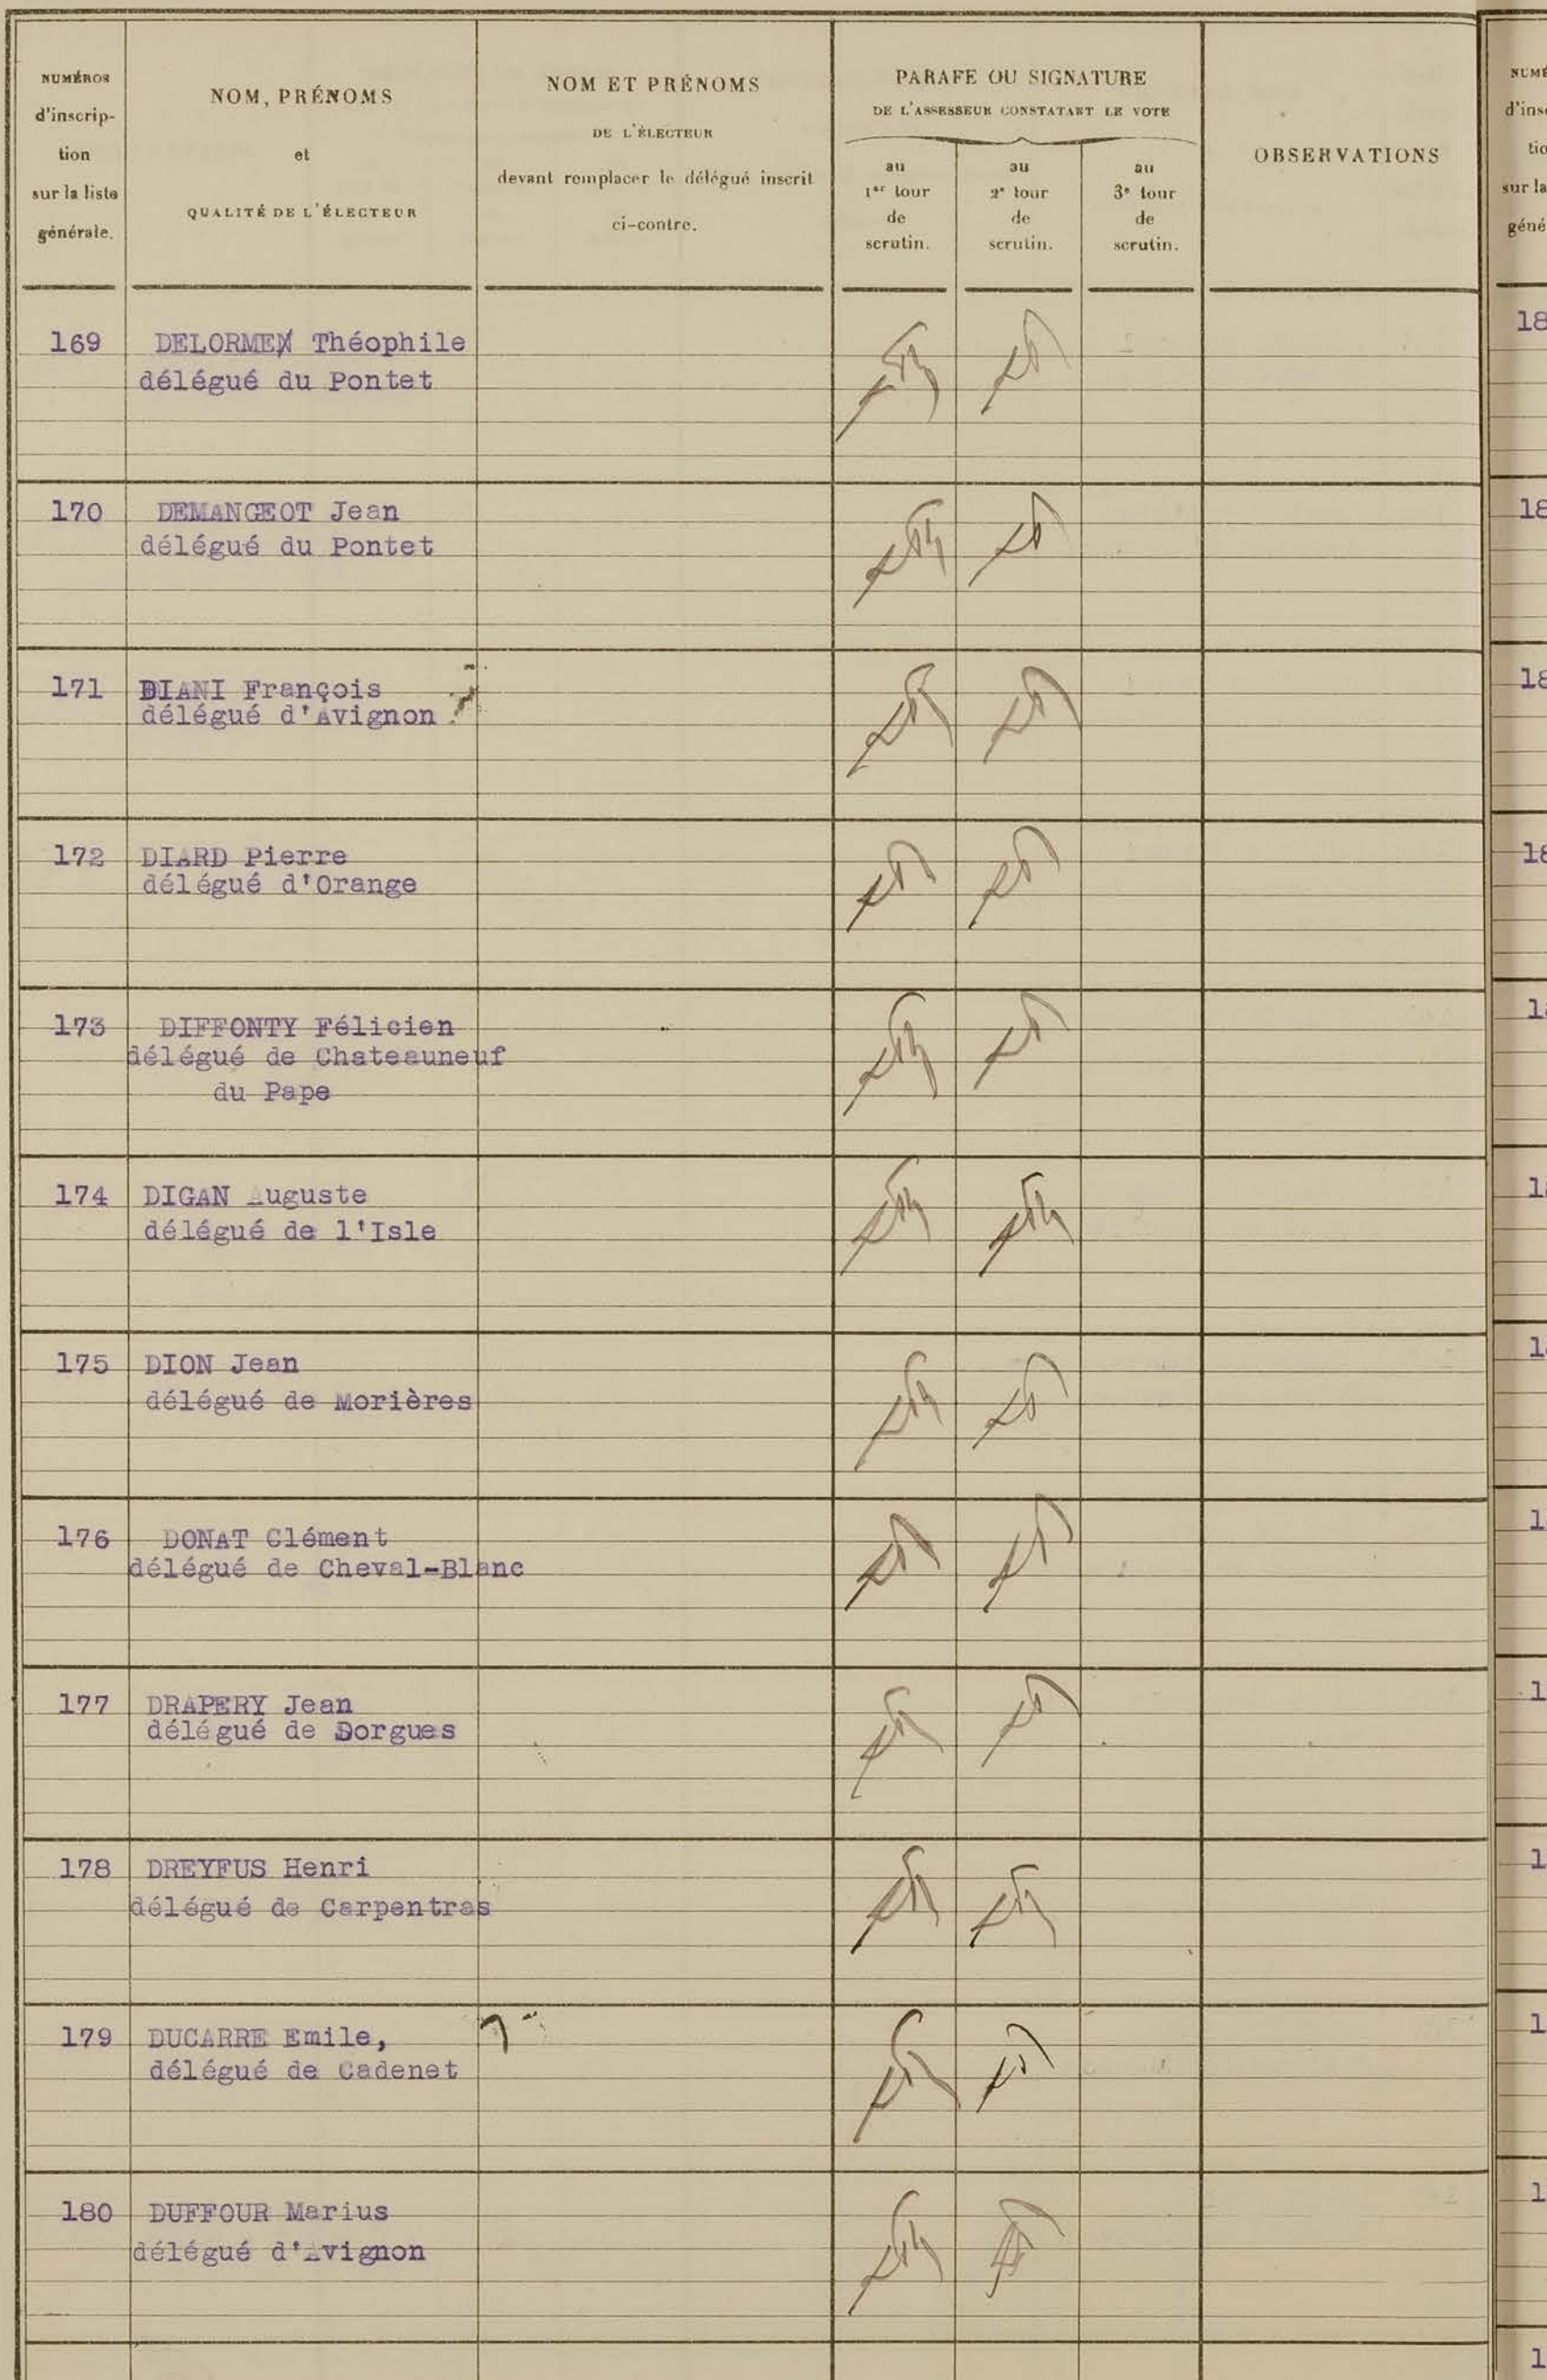 NUMÉROS
d'inscrip-
tion
sur la liste
générale.
NOM, PRÉNOMS
et
QUALITÉ DE L'ÉLECTEUR
NOM ET PRÉNOMS
DE L'ÉLECTEUR
devant remplacer le délégué inscrit
ci-contre.
PARAFE OU SIGNATURE
DE L'ASSESSEUR CONSTATANT LE VOTE
au
1er tour
de
scrutin.
au
2e tour
de
scrutin.
au
3e tour
de
scrutin.
OBSERVATIONS
169 DELORME Théophile
délégué du Pontet
170 DEMANGEOT Jean
délégué du Pontet
171 DIANI François
délégué d'Avignon
172 DIARD Pierre
délégué d'Orange
173 DIFFONTY Félicien
délégué de Chateauneuf
du Pape
174 DIGAN Auguste
délégué de l'Isle
175 DION Jean
délégué de Morières
176 DONAT Clément
délégué de Cheval-Blanc
177 DRAPERY Jean
délégué de Sorgues
178 DREYFUS Henri
délégué de Carpentras
179 DUCARRE Emile,
délégué de Cadenet
180 DUFFOUR Marius
délégué d'Avignon